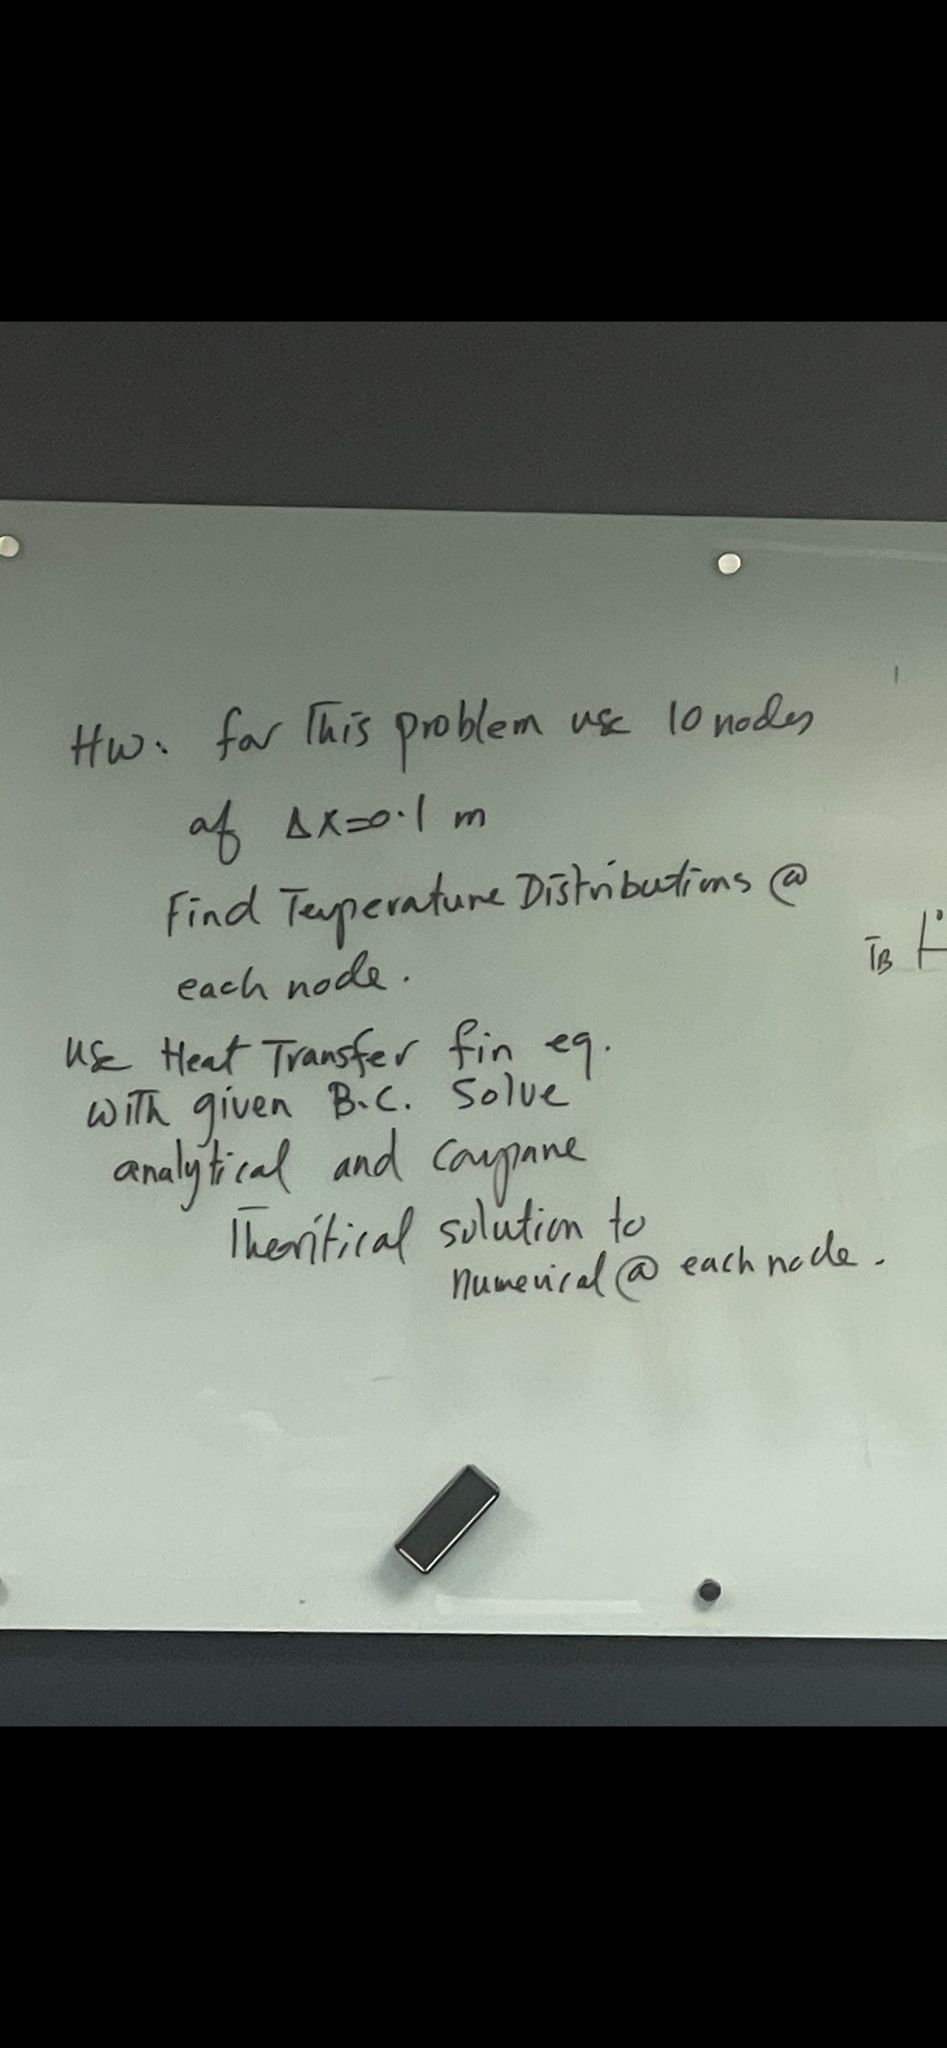 HW. for This problem use 10 nodes
of Δx=0.1 m
Find Temperature Distributions @
each node.
use Heat Transfer fin eq.
with given B.C. Solve
analytical and compare
Theoritical solution to
numerical @ each node.
TB